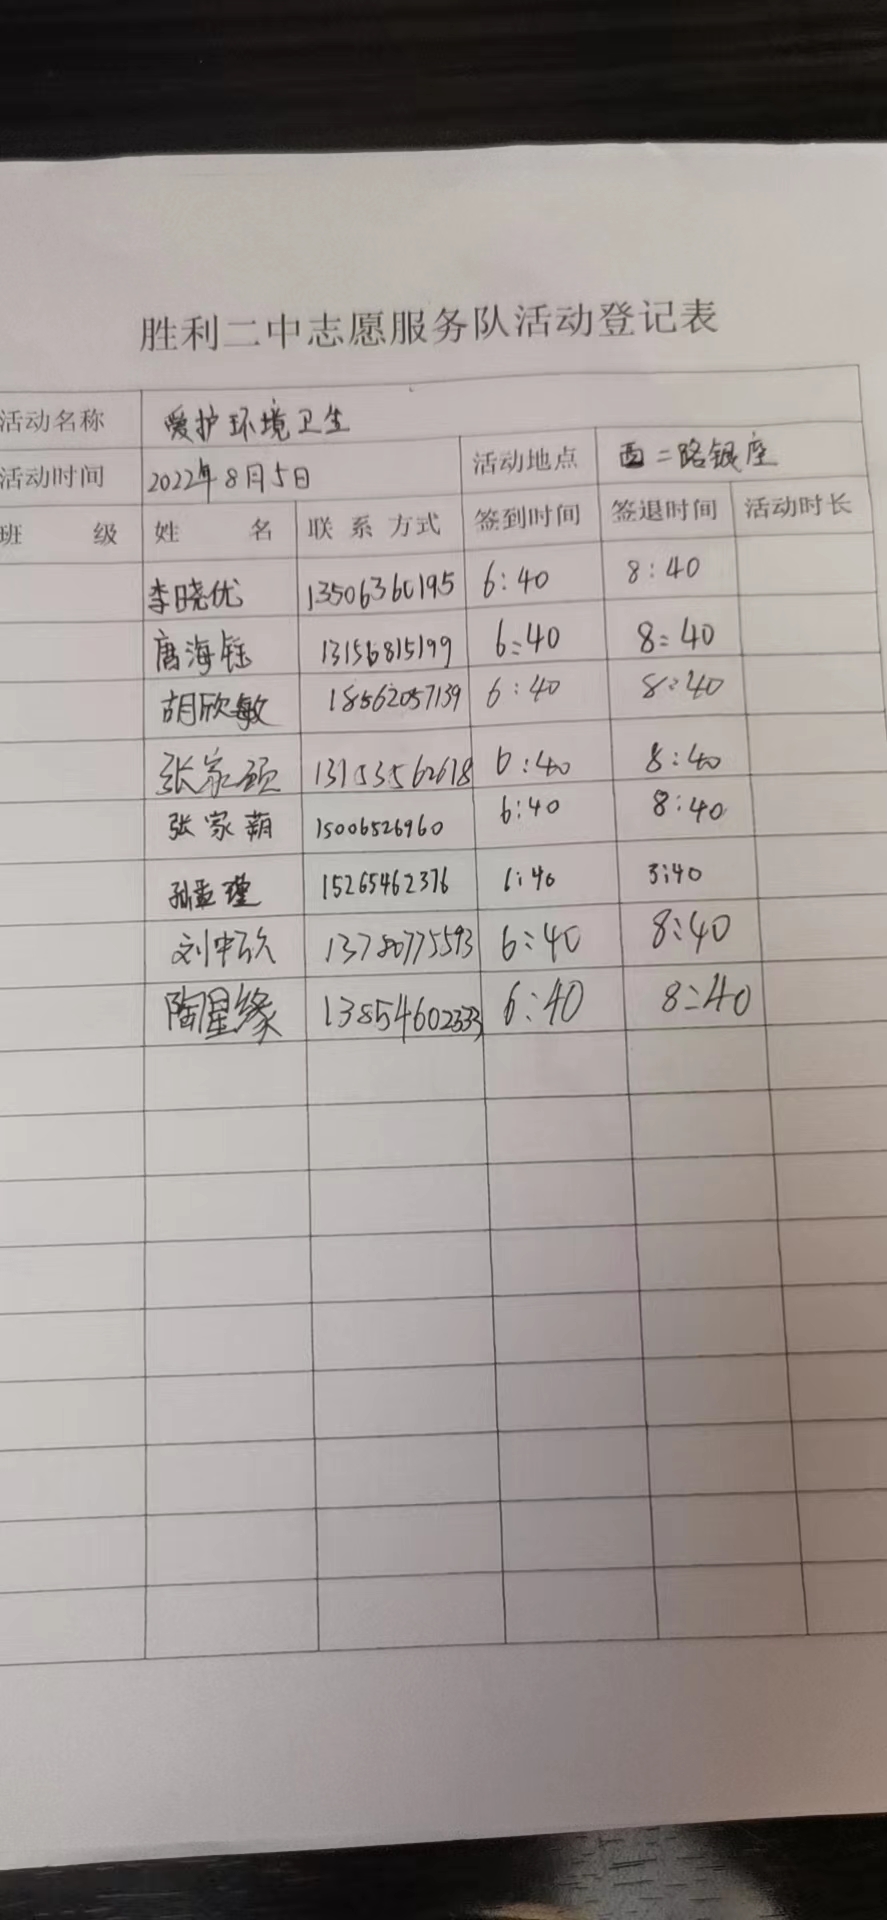 胜利二中志愿服务队活动登记表
活动名称 爱护环境卫生
活动时间 2022年8月5日 活动地点 西二路银座
班 级 姓 名 联 系 方式 签到时间 签退时间 活动时长
李晓优 13506360195 6:40 8:40
唐海钰 13156815199 6:40 8:40
胡欣敏 18562057139 6:40 8:40
张家硕 13153562618 6:40 8:40
张家萌 15006526960 6:40 8:40
孙孟瑾 15265462376 6:40 8:40
刘中 13780775593 6:40 8:40
陶星缘 13854602333 6:40 8:40